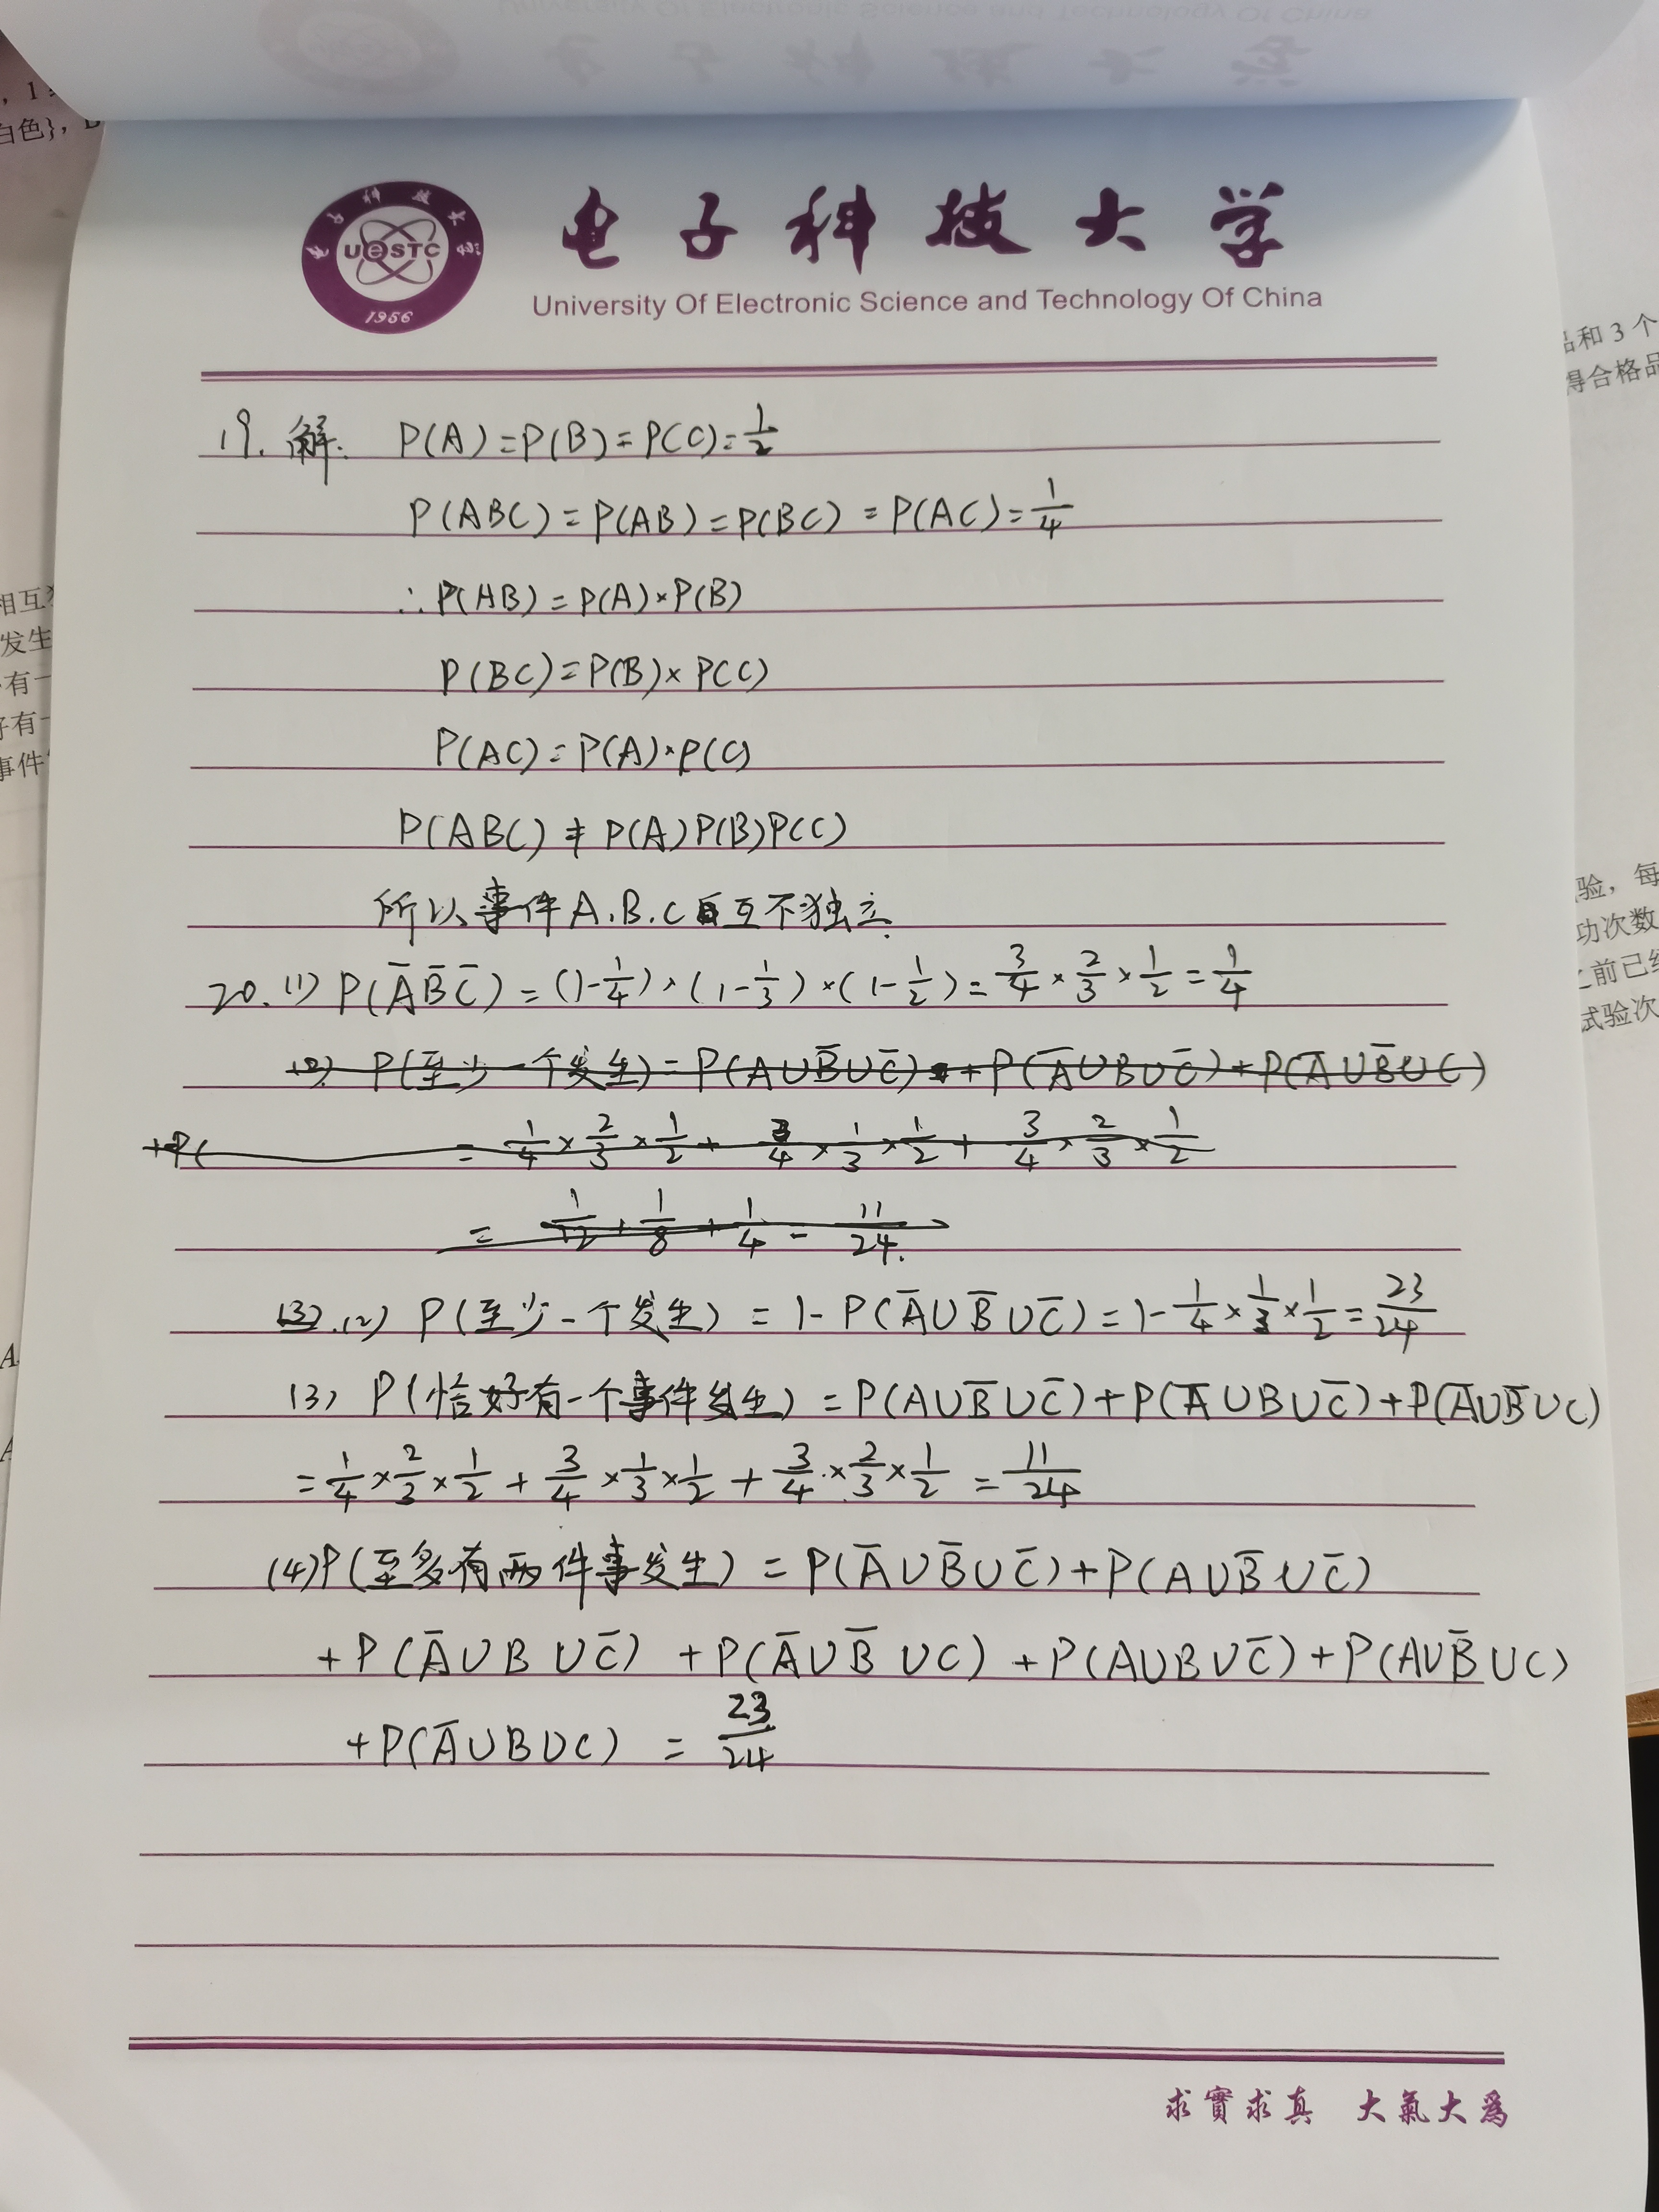 , 1
白色},
电子科技大学
UeSTC
1956
电子科技大学
University Of Electronic Science and Technology Of China
品和 3 个
得合格品
19. 解: P(A)=P(B)=P(C)=1/2
P(ABC)=P(AB)=P(BC)=P(AC)=1/4
∴P(AB)=P(A)×P(B)
P(BC)=P(B)×P(C)
P(AC)=P(A)·P(C)
P(ABC)≠P(A)P(B)P(C)
所以事件A.B.C互不独立.
相互
发生
有一
好有一
事件
验, 每
功次数
之前已
试验次
20. (1) P(A̅B̅C̅)=(1-1/4)×(1-1/3)×(1-1/2)=3/4×2/3×1/2=1/4
(2) P(至少一个发生)=P(A∪B̅∪C̅)+P(A̅∪B∪C̅)+P(A̅∪B̅∪C)
+P( =1/4×2/3×1/2+3/4×1/3×1/2+3/4×2/3×1/2
=1/12+1/8+1/4=11/24.
(3).(2) P(至少一个发生)=1-P(A̅∪B̅∪C̅)=1-1/4×1/3×1/2=23/24
(3) P(恰好有一个事件发生)=P(A∪B̅∪C̅)+P(A̅∪B∪C̅)+P(A̅∪B̅∪C)
=1/4×2/3×1/2+3/4×1/3×1/2+3/4×2/3×1/2=11/24
(4)P(至多有两件事发生)=P(A̅∪B̅∪C̅)+P(A∪B̅∪C̅)
+P(A̅∪B∪C̅)+P(A̅∪B̅∪C)+P(A∪B∪C̅)+P(A∪B̅∪C)
+P(A̅∪B∪C)=23/24
求實求真 大氣大為